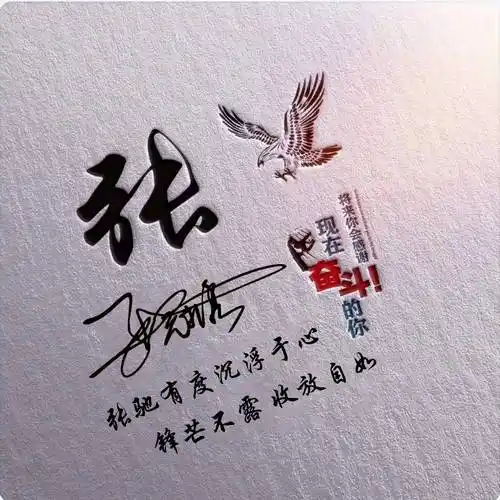 张
将来你会感谢
现在
奋斗!
的你
张驰有度沉浮于心
锋芒不露收放自如